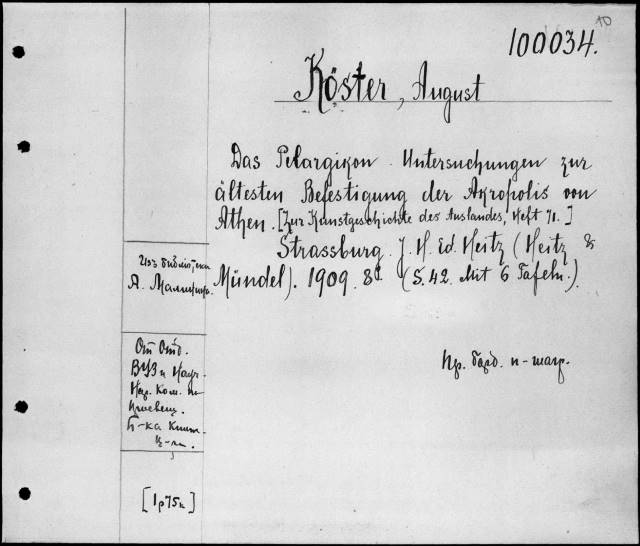 10
100034.
Köster, August
Das Pelargikon. Untersuchungen zur
ältesten Befestigung der Akropolis von
Athen. [Zur Kunstgeschichte des Auslandes, Heft 71.]
Strassburg. J. H. Ed. Heitz (Heitz &
Mündel). 1909. 8° (S. 42. Mit 6 Tafeln.)
Изъ библіотеки
А. Малинина.
От Отд.
ВУЗ и Науч.
Нар. Ком. по
Просвещ.
Б-ка Книж.
[1р75к]